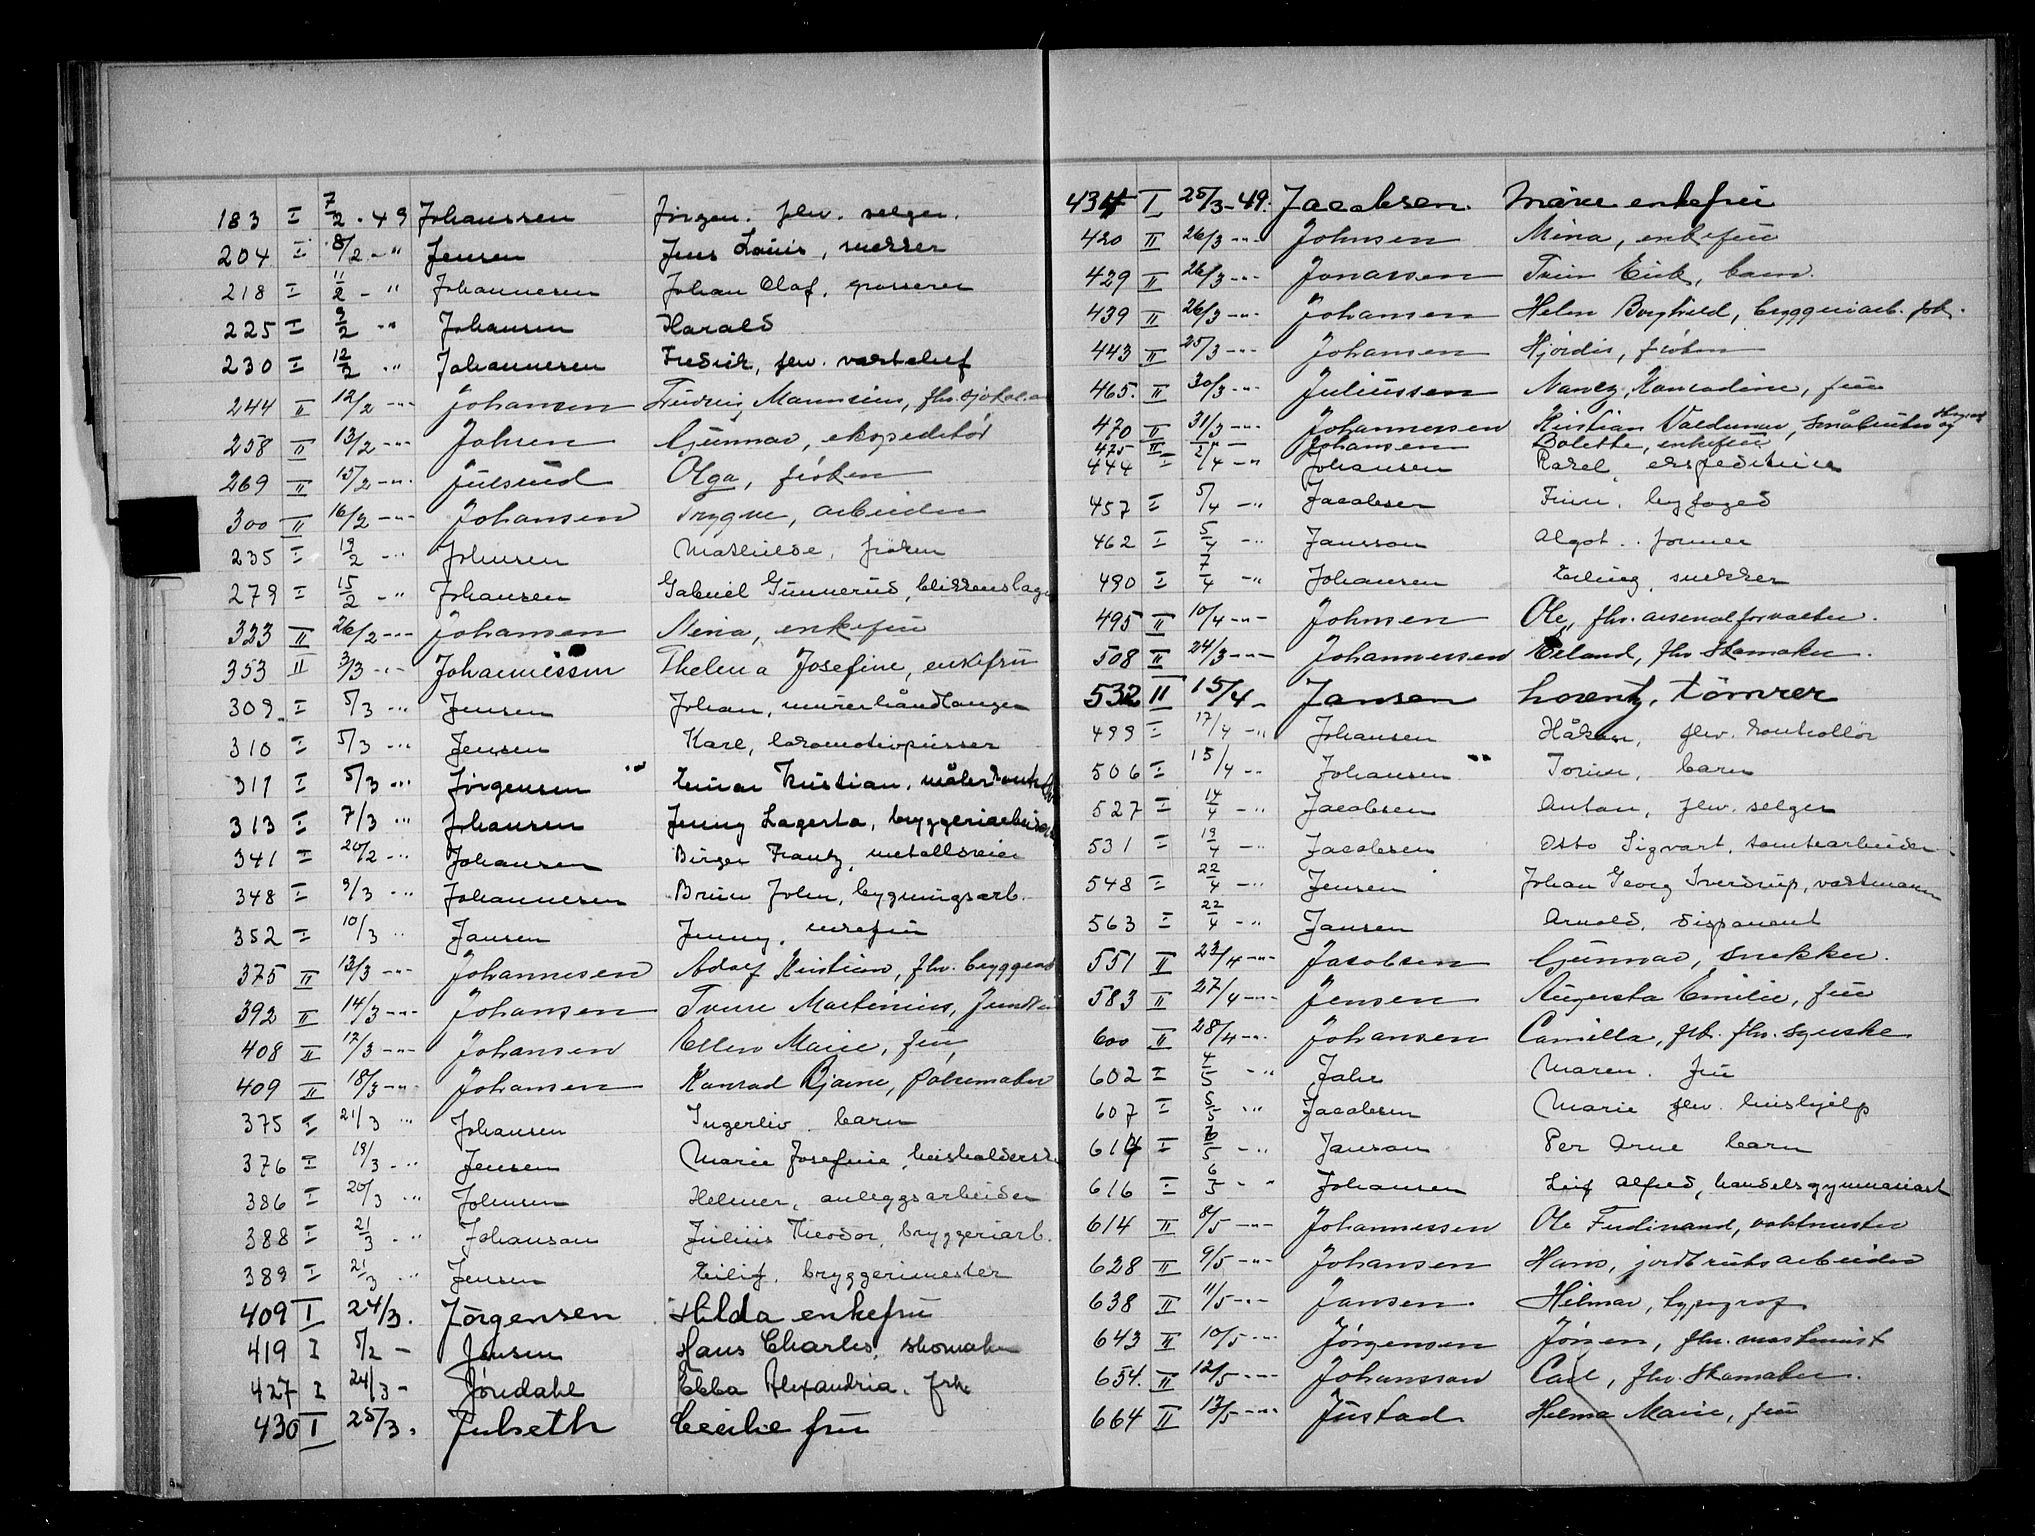 183 I 7/2 - 49 Johanssen Jørgen. fhv. selger.
204 I 8/2 - " Jensen Jens Louis, snekker
218 I 11/2 - " Johannesen Johan Olaf, grosserer
225 I 9/2 " Johansen Harald
230 I 12/2 " Johannesen Fredrik, fhv. vaktchef
244 II 12/2 -"- Johansen Mannsius, fhv.
258 II 13/2 -"- Johsen Gunnar, ekspeditør
269 II 15/2 -"- Julsrud Olga, frøken
300 II 16/2 -"- Johansen Trygve, arbeider
235 I 19/2 -" Johnsen Mathilde, frøken
279 I 15/2 -" Johansen Gabriel Gunnerud, blikkenslager
323 II 26/2 -"- Johansen Nina, enkefru
353 II 3/3 -"- Johannessen Thelma Josefine, enkefru
309 I 5/3 -" Jensen Johan, murerhåndlanger
310 I 5/3 -" Jensen Karl, lokomotivpusser
311 I 5/3 -" Jørgensen Einar Kristian, målerkontrollør
313 I 7/3 " Johansen Jenny Lagerta, bryggeriarbeider
341 I 20/2 -" Johansen Birger Frantz, metalldreier
348 I 9/3 -" Johannesen Bruun John, bygningsarb.
352 I 10/3 " Jansen Jenny, enkefru
375 II 13/3 -"- Johannesen Adolf Kristian, fhv.
392 II 14/3 -"- Johansen Tvure Martinius,
408 II 17/3 -"- Johansen Ellen Marie, fru
409 II 18/3 -"- Johansen Konrad Bjarne,
375 I 21/3 " Johansen Ingerliv barn
376 I 19/3 -" Jensen Marie Josefine,
386 I 20/3 " Johnsen Helmer, anleggsarbeider
388 I 21/3 -" Johanson Julius Theodor, bryggeriarb.
389 I 21/3 " Jensen Eilif, bryggerimester
409 I 24/3. Jörgensen Hilda enkefru
419 I 5/2 - Jensen Hans Charles, skomaker
427 I 24/3 - Jôndahl Ebba Alexandria. frk
430 I 25/3. Julseth Cecilie fru
434 I 25/3-49. Jacobsen. Marie enkefru
420 II 26/3 -"- Johnsen Mina, enkefru
429 II 26/3 -"- Jonassen Eirik, barn.
439 II 26/3 -"- Johansen Helen Borghild, bryggeriarb. frk.
443 II 25/3 -"- Johansen Hjørdis, frøken
465. II 30/3 -"- Juliussen Nancy Konradine, fru
470 II 31/3 -"- Johannessen Kristian Valdemar, småbruker og
475 II 2/4 - Johansen Bolette, enkefru
444 I /4 -" Johansen Rakel, ekspeditrise
457 I 5/4 -" Jacobsen Finn, byfoged
462 I 5/4 -" Jansson Algot. former
490 I 7/4 -" Johansen Erling, snekker
495 II 10/4 -"- Johnsen Ole, fhv. arsenalforvalter.
508 II 24/3 -"- Johannessen Erland, fhv skomaker.
532 II 15/4 - Jansen Lorentz, tömrer
499 I 17/4 -" Johansen Håkon, fhv. kontrollør
506 I 15/4 -" Johansen Torunn, barn
527 I 14/4 -" Jacobsen Anton, fhv. selger
531 I 19/4 -" Jacobsen Otto Sigvart, tomtearbeider
548 I 22/4 -" Jensen Johan Georg Sverdrup, vaktmann
563 I 22/4 -" Jansen Arnold, disponent
551 II 23/4 -"- Jacobsen Gunnar, snekker.
583 II 27/4 -"- Jensen Augusta Emilie, fru
600 II 28/4 -"- Johansen Camilla, frk. fhv. syerske
602 I 4/5 -" Jahr Maren. fru
607 I 5/5 " Jacobsen Marie fhv. hushjelp
614 I /5 -" Janson Per Arne barn
616 I 6/5 -" Johansen Leif Alfred, handelsgymnasiast
614 II 8/5 -"- Johannessen Ole Ferdinand, vaktmester
628 II 9/5 -"- Johansen Hans, jordbruksarbeider
638 II 11/5 -"- Jansen. Hilmar, typograf
643 II 10/5 -"- Jørgensen Jörgen, fhv. maskinist
654. II 12/5 -"- Johansson Carl, fhv. skomaker.
664 II 13/5 -"- Justad Helma Marie, fru